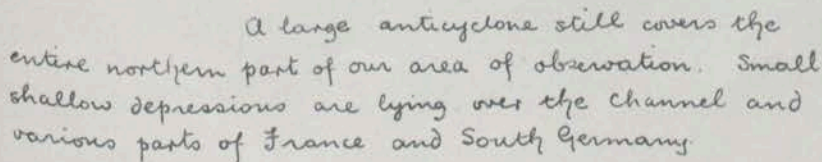 A large anticyclone still covers the
entire northern part of our area of observation. Small
shallow depressions are lying over the Channel and
various parts of France and South Germany.